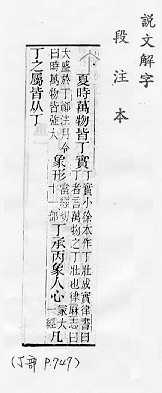 說文解字
段注本
夏時萬物皆丁實丁實小徐本作丁壯成實律書曰丁者言萬物之丁壯也律厤志曰
大盛於丁鄭注月令曰時萬物皆強大象形當經切十一部丁承丙象人心冡大一經凡
丁之屬皆从丁
(丁部 P.747)